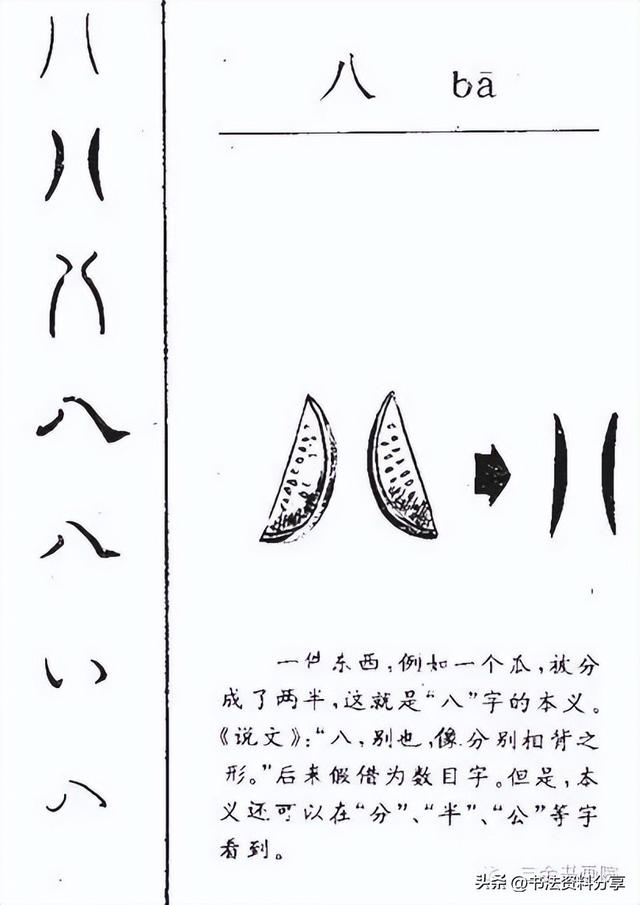 八 bā
一件东西,例如一个瓜,被分
成了两半,这就是“八”字的本义。
《说文》:“八,别也,像分别相背之
形。”后来假借为数目字。但是,本
义还可以在“分”、“半”、“公”等字
看到。
头条 @书法资料分享